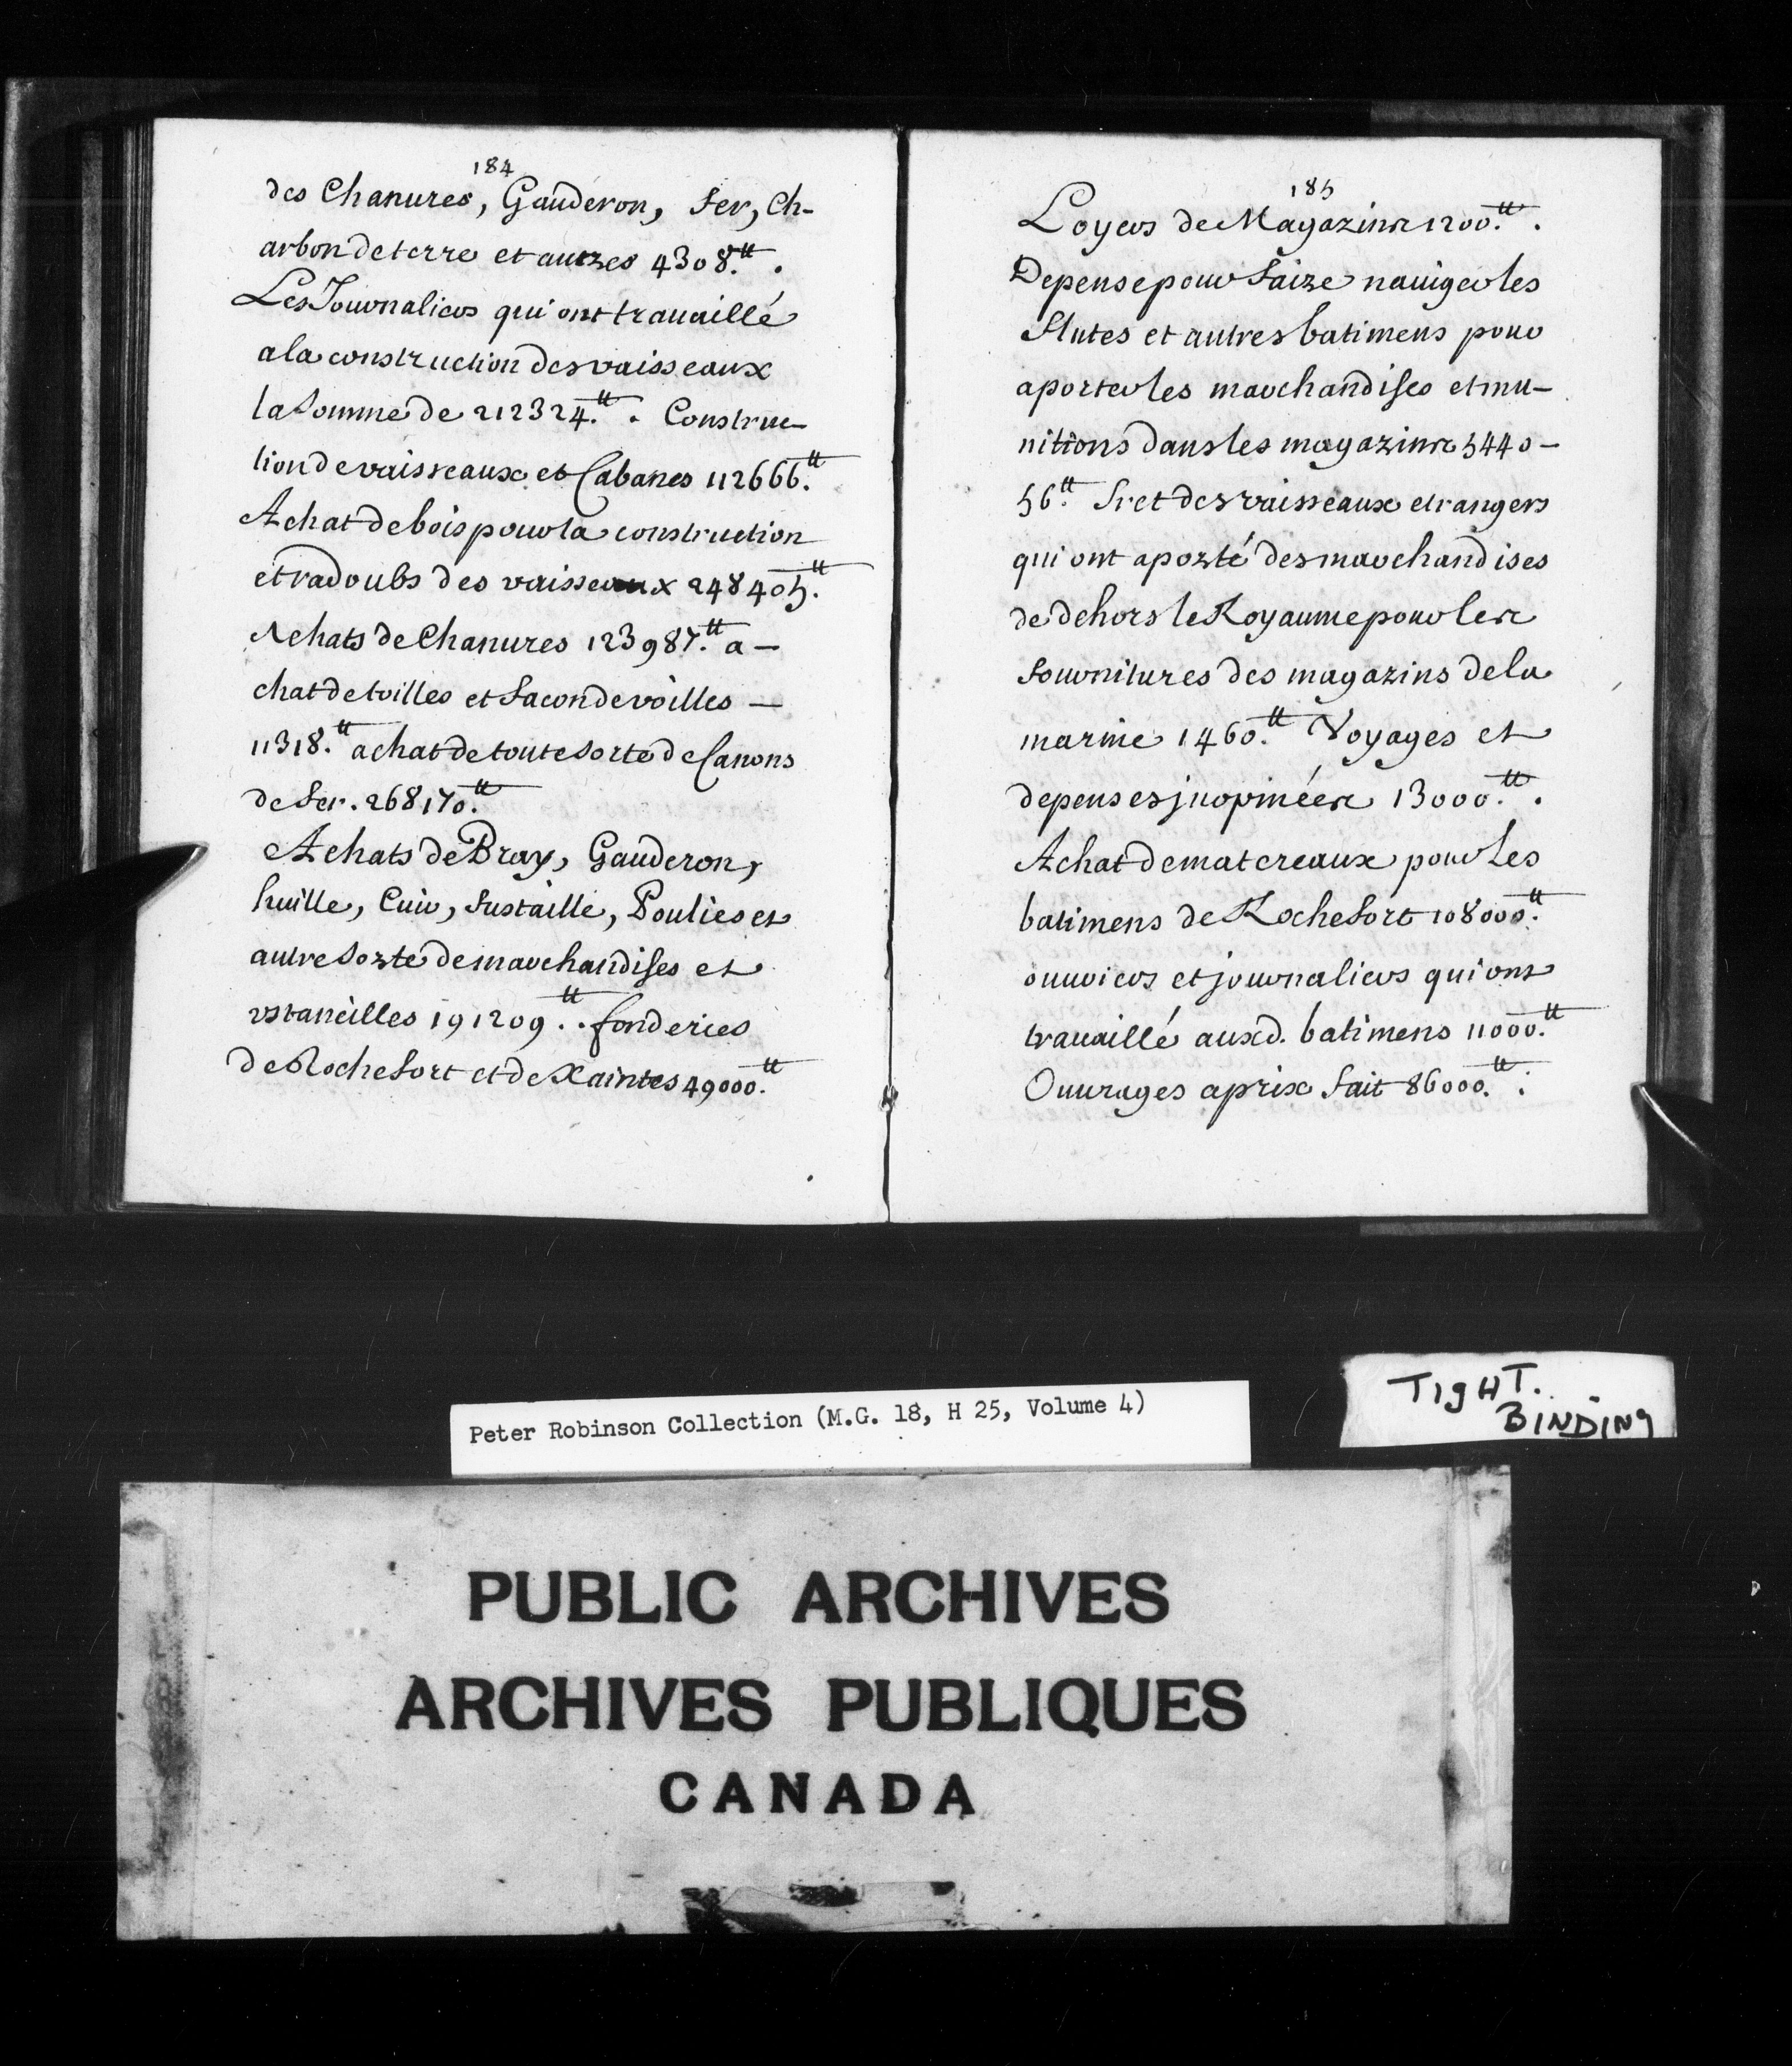 184
des Chanures, Gauderon, fer, Ch-
arbon de terre et autres 4308.ᵗᵗ.
Les Journaliers qui ont trauaillé
a la construction des vaisseaux
la somme de 212324.ᵗᵗ. Construc-
tion de vaisseaux et Cabanes 112666.ᵗᵗ
Achat de bois pour la construction
et radoubs des vaisseaux 248405.ᵗᵗ
Achats de Chanures 123987.ᵗᵗ a-
chat de toilles et facon de voilles -
11318.ᵗᵗ achat de toute sorte de Canons
de fer. 268170.ᵗᵗ
Achats de Bray, Gauderon,
huille, Cuir, fustaille, Poulies et
autre sorte de marchandises et
vstancilles 191209.ᵗᵗ. fonderies
de Rochefort et de Xaintes 49000.ᵗᵗ
185
Loyers de Magazins 1200.ᵗᵗ.
Depense pour faire nauiger les
flutes et autres batimens pour
aporter les marchandises et mu-
nitions dans les magazins 5440-
56.ᵗᵗ fret des vaisseaux etrangers
qui ont aporté des marchandises
de dehors le Royaume pour les
fournitures des magazins de la
marine 1460.ᵗᵗ Voyages et
depenses jnopinées 13000.ᵗᵗ.
Achat de matereaux pour les
batimens de Rochefort 108000.ᵗᵗ
ouuriers et journaliers qui ont
trauaillé auxd. batimens 11000.ᵗᵗ
Ouurages a prix fait 86000.ᵗᵗ.
TIGHT.
BINDING
Peter Robinson Collection (M.G. 18, H 25, Volume 4)
PUBLIC ARCHIVES
ARCHIVES PUBLIQUES
CANADA